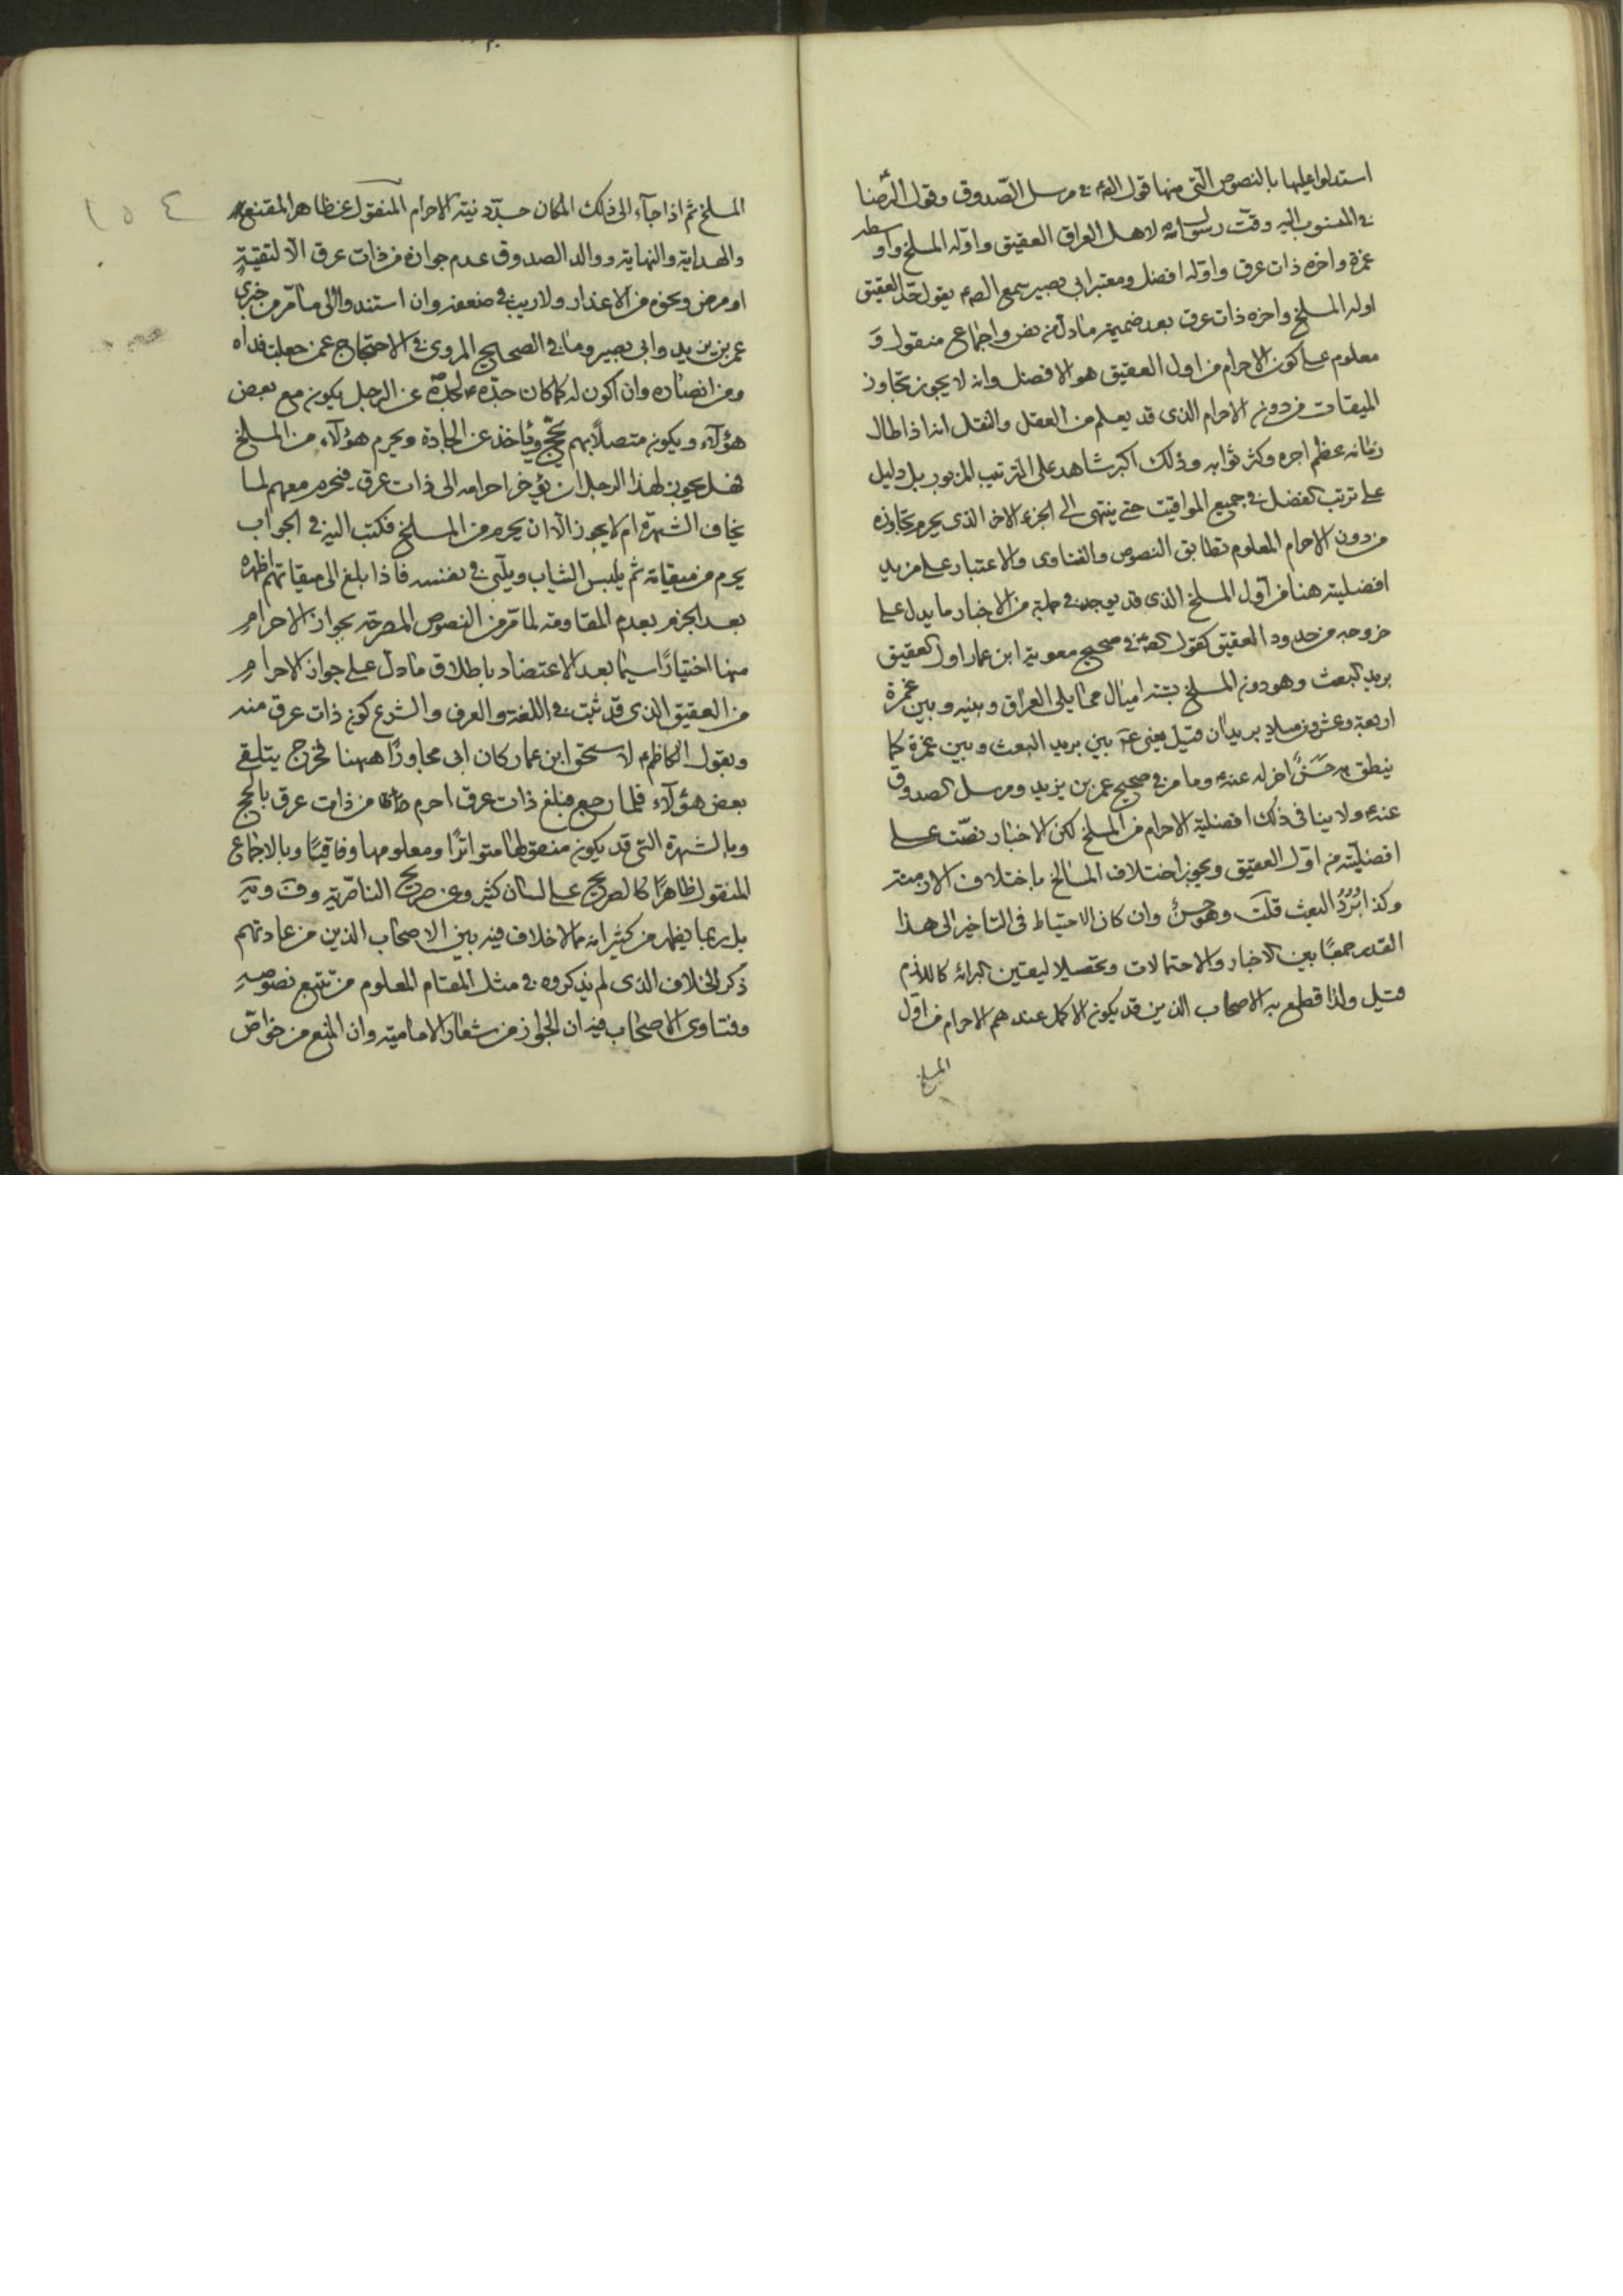 استدلوا عليها بالنصوص التي منها قول الصم في مرسل الصدوق وقول الرضا
في المنسوب اليه وقت رسول الله لاهل العراق العقيق واوله المسلخ واوسطه
غمرة واخره ذات عرق واوله افضل ومعتبر ابي بصير سمع الصم يقول حد العقيق
اوله المسلخ واخره ذات عرق بعد ضميمة ما دل من نص واجماع منقول و
معلوم على كون الاحرام من اول العقيق هو الافضل وانه لا يجوز تجاوز
الميقات من دون الاحرام الذي قد يعلم من العقل والنقل انه اذا طال
زمانه عظم اجره وكثر ثوابه وذلك اكبر شاهد على الترتيب المزبور بل دليل
على ترتب الفضل في جميع المواقيت حتى ينتهى الى الجزء الاخر الذي يحرم تجاوزه
من دون الاحرام المعلوم تطابق النصوص والفتاوى والاعتبار على مزيد
افضليته هنا من اول المسلخ الذي قد يوجد في جملة من الاخبار ما يدل على
خروجه من حدود العقيق كقول الصم في صحيح معوية ابن عمار اول العقيق
بريد البعث وهو دون المسلخ بستة اميال مما يلى العراق وبينه وبين غمرة
اربعة وعشرون ميلا بريدان قيل يعنى بين بريد البعث وبين غمرة كما
ينطق به حسن اخر له عنه وما مر في صحيح عمر بن يزيد ومرسل الصدوق
عنه ولا ينافي ذلك افضلية الاحرام من المسلخ لكن الاخبار نصت على
افضليته من اول العقيق ويجوز اختلاف المسالخ باختلاف الازمنة
وكذا برد البعث قلت وهو حسن وان كان الاحتياط في التاخير الى هذا
القدر جمعا بين الاخبار والاحتمالات وتحصيلا ليقين البرائة كاللازم
قيل ولذا قطع به الاصحاب الذين قد يكون الاكمل عندهم الاحرام من اول
المسلخ
١٥٤
المسلخ ثم اذا جاء الى ذلك المكان جدد نية الاحرام المنقول عن ظاهر المقنع
والهداية والنهاية ووالد الصدوق عدم جوازه من ذات عرق الا لتقية
او مرض ونحوه من الاعذار ولا ريب في ضعفه وان استندوا الى ما مر من خبرى
عمر بن يزيد وابي بصير وما في الصحيح المروى في الاحتجاج عمن جعلت فداه
ومن انصاره وان اكون له كما كان جده لجده عن الرجل يكون مع بعض
هؤلاء ويكون متصلا بهم يحج وياخذ عن الجادة ويحرم هؤلاء من المسلخ
فهل يجوز لهذا الرجل ان يؤخر احرامه الى ذات عرق فيحرم معهم لما
يخاف الشهرة ام لا يجوز الا ان يحرم من المسلخ فكتب اليه في الجواب
يحرم من ميقاته ثم يلبس الثياب ويلبى في نفسه فاذا بلغ الى ميقاتهم اظهره
بعد الجزم بعدم المقاومة لما مر من النصوص المصرحة بجواز الاحرام
منها اختيارا سيما بعد الاعتضاد باطلاق ما دل على جواز الاحرام
من العقيق الذي قد ثبت في اللغة والعرف والشرع كون ذات عرق منه
وبقول الكاظم لاسحق ابن عمار كان ابى مجاورا ههنا فخرج يتلقى
بعض هؤلاء فلما رجع فبلغ ذات عرق احرم من ذات عرق بالحج
وبالشهرة التي قد يكون منقولها متواترا ومعلومها وفاقيا وبالاجماع
المنقول ظاهرا كالصريح على لسان كثير وعن صريح الناصرية وف وية
بل ربما يظهر من كثير انه مما لا خلاف فيه بين الاصحاب الذين من عادتهم
ذكر الخلاف الذي لم يذكروه في مثل المقام المعلوم من تتبع نصوصه
وفتاوى الاصحاب فيه ان الجواز من شعار الامامية وان المنع من خواص